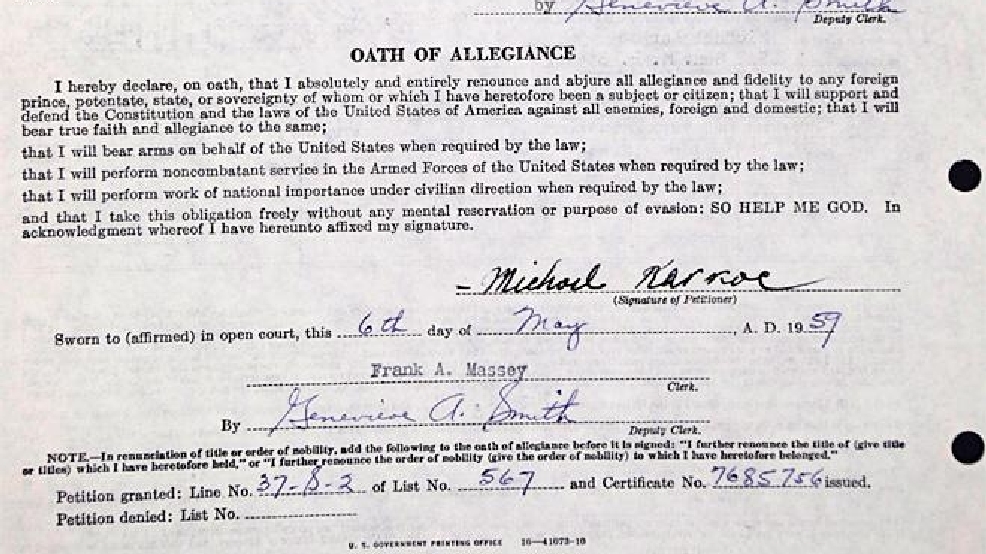 by Genevieve A. Smith
Deputy Clerk.
OATH OF ALLEGIANCE
I hereby declare, on oath, that I absolutely and entirely renounce and abjure all allegiance and fidelity to any foreign
prince, potentate, state, or sovereignty of whom or which I have heretofore been a subject or citizen; that I will support and
defend the Constitution and the laws of the United States of America against all enemies, foreign and domestic; that I will
bear true faith and allegiance to the same;
that I will bear arms on behalf of the United States when required by the law;
that I will perform noncombatant service in the Armed Forces of the United States when required by the law;
that I will perform work of national importance under civilian direction when required by the law;
and that I take this obligation freely without any mental reservation or purpose of evasion: SO HELP ME GOD. In
acknowledgment whereof I have hereunto affixed my signature.
Michael
(Signature of Petitioner)
Sworn to (affirmed) in open court, this 6th day of May, A. D. 1959
Frank A. Massey
Clerk.
By Genevieve A. Smith
Deputy Clerk.
NOTE.—In renunciation of title or order of nobility, add the following to the oath of allegiance before it is signed: "I further renounce the title of (give title
or titles) which I have heretofore held," or "I further renounce the order of nobility (give the order of nobility) to which I have heretofore belonged."
Petition granted: Line No. 37-8-2 of List No. 567 and Certificate No. 7685756 issued.
Petition denied: List No.
U. S. GOVERNMENT PRINTING OFFICE 16—41073-10